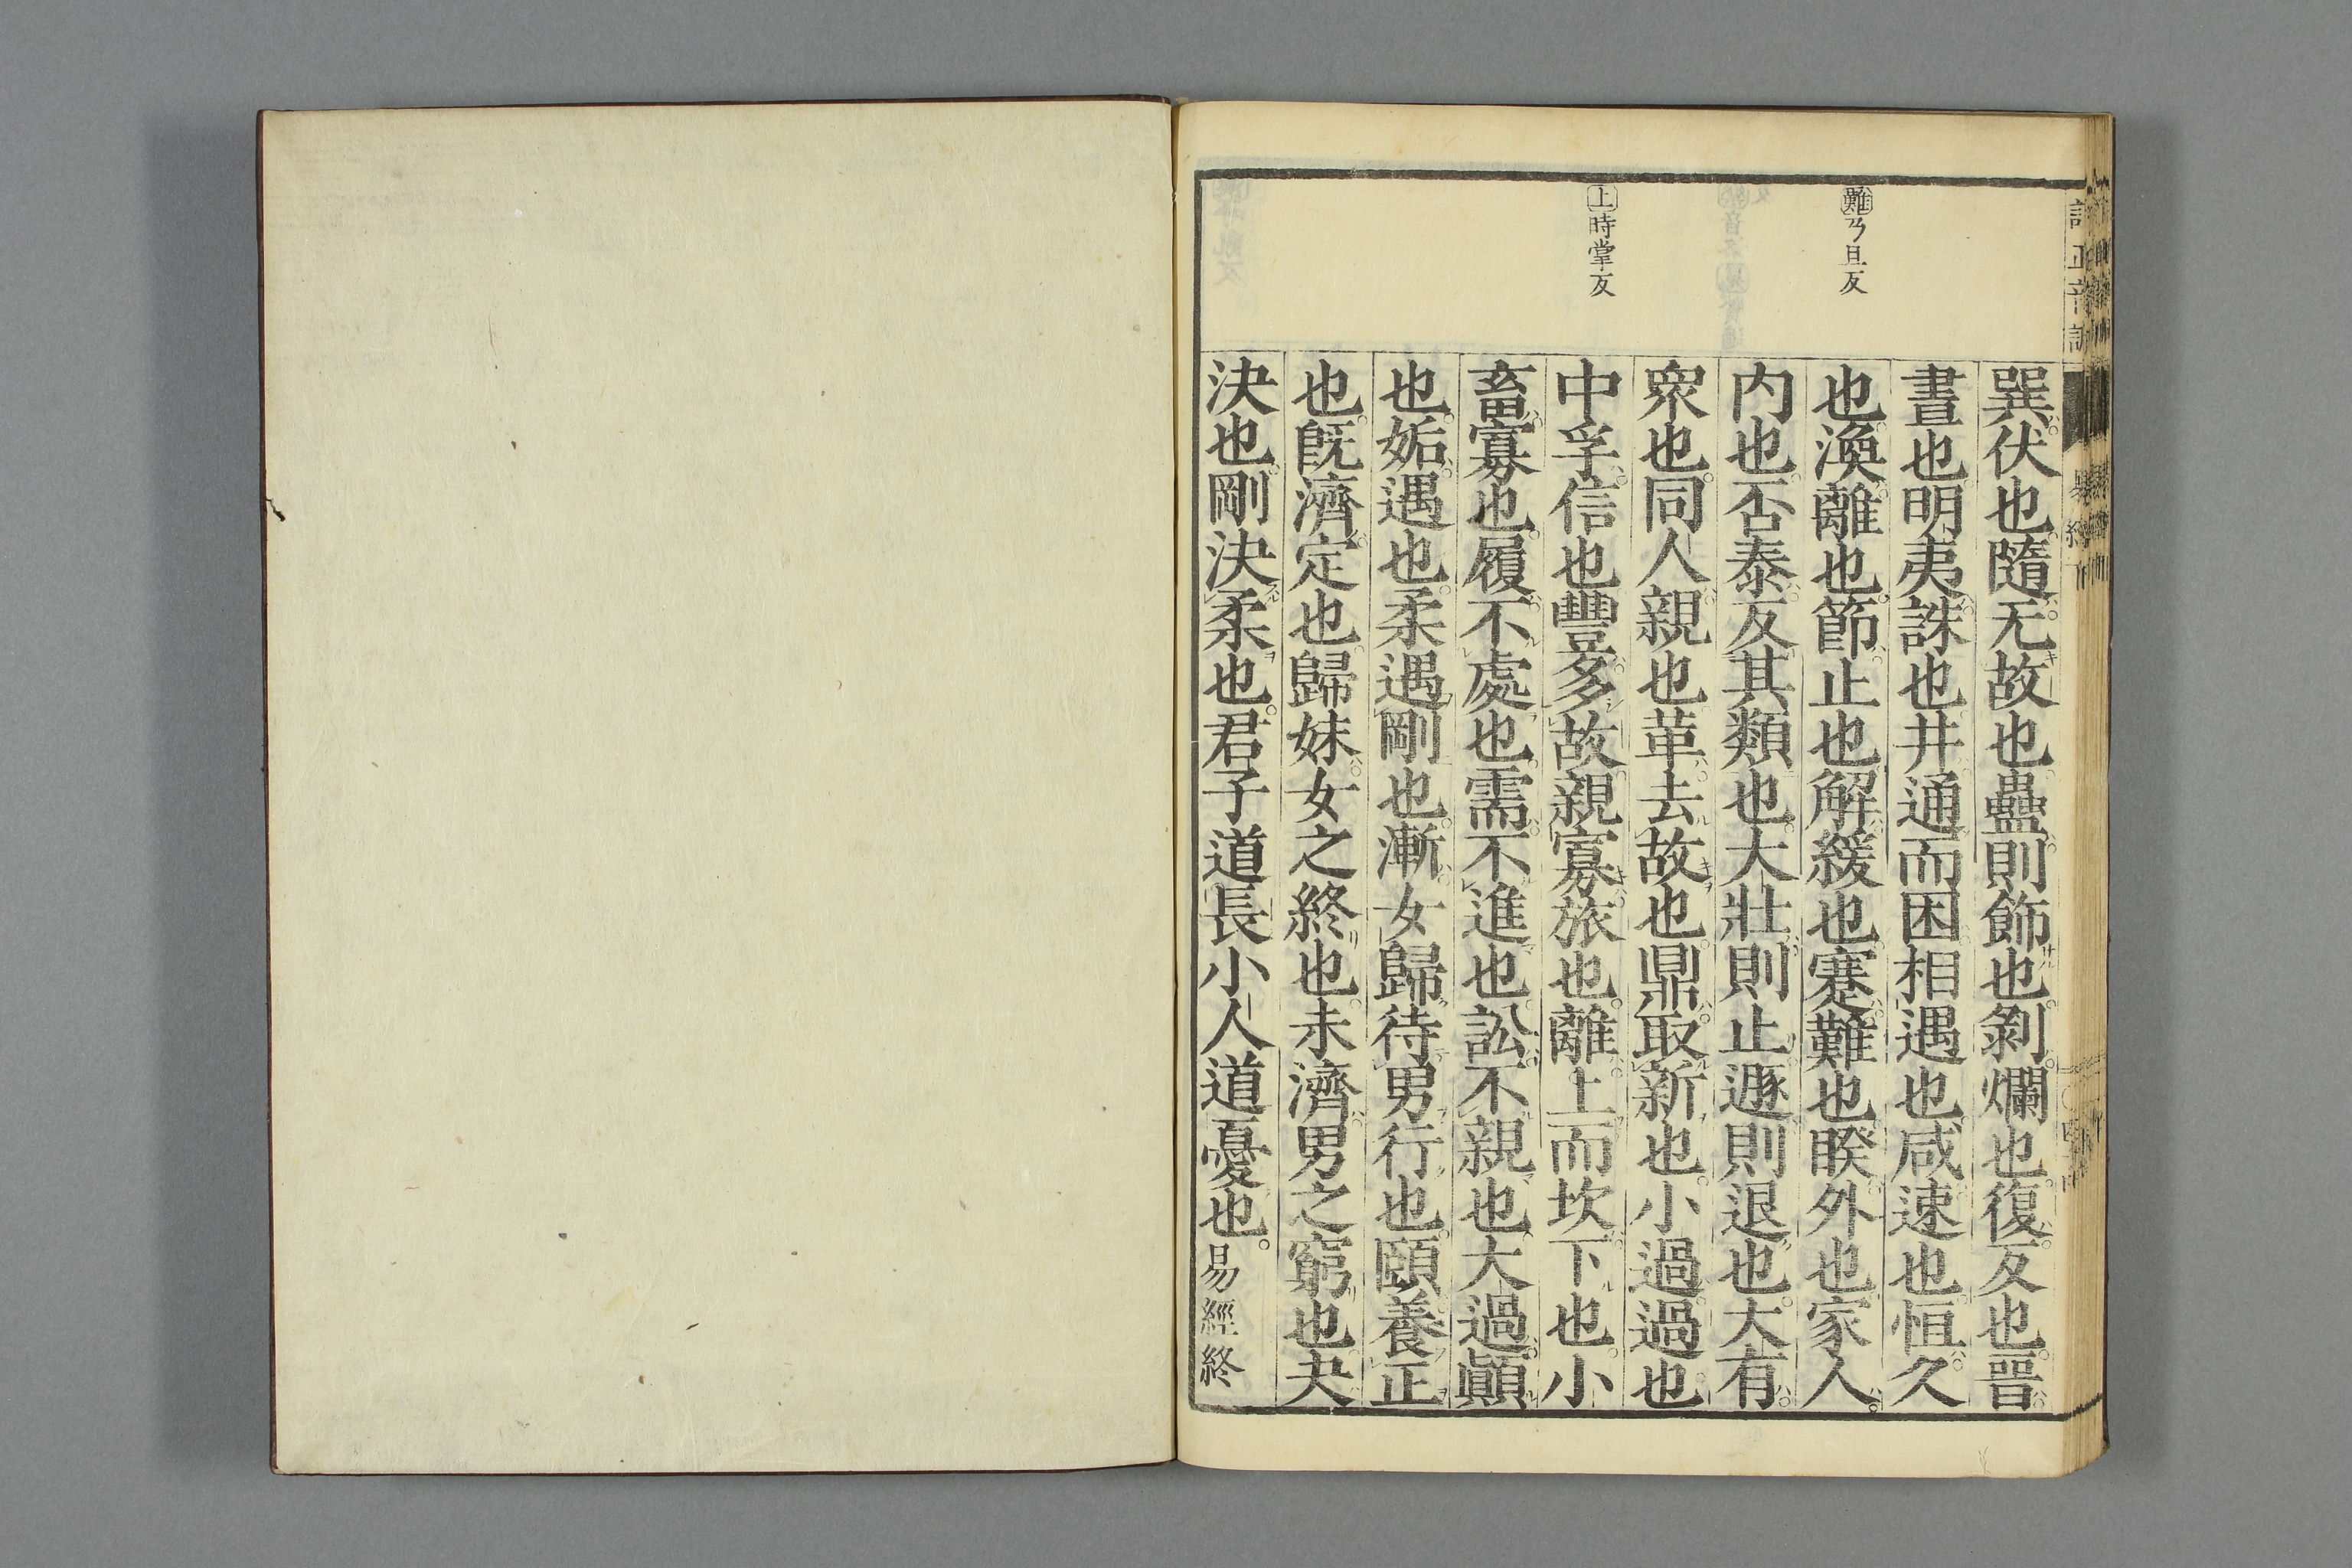 難乃旦反
上時掌反
巽伏也隨无故也蠱則飾也剝爛也復反也晋
晝也明夷誅也井通而困相遇也咸速也恒久
也渙離也節止也解緩也蹇難也睽外也家人
内也否泰反其類也大壯則止遯則退也大有
衆也同人親也革去故也鼎取新也小過過也
中孚信也豐多故親寡旅也離上而坎下也小
畜寡也履不處也需不進也訟不親也大過顚
也姤遇也柔遇剛也漸女歸待男行也頤養正
也旣濟定也歸妹女之終也未濟男之窮也夬
決也剛決柔也君子道長小人道憂也 易經終